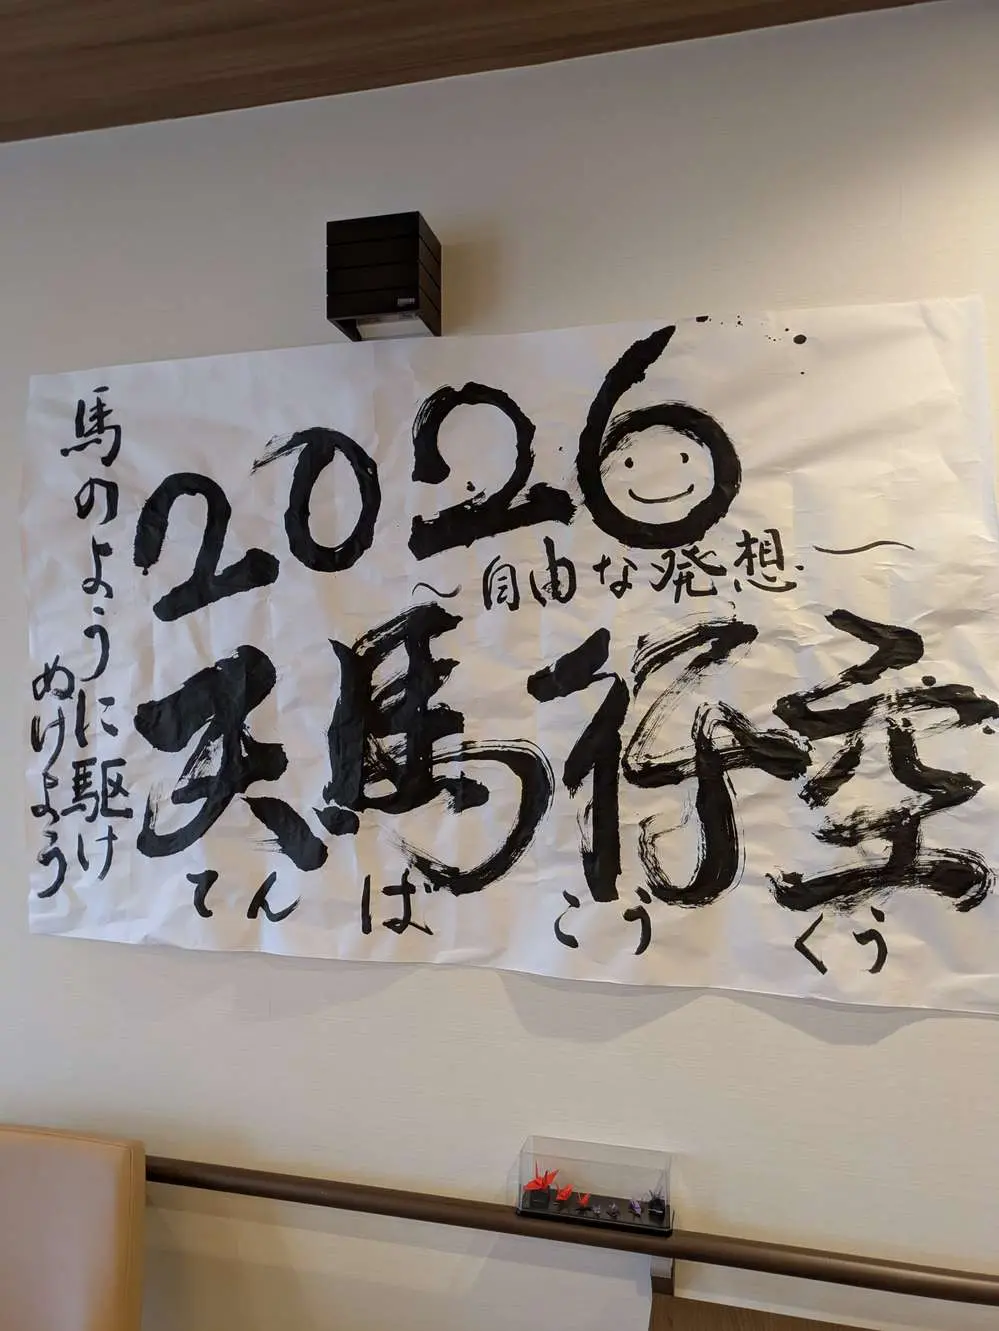 2026
〜自由な発想〜
天馬行空
てんば こうくう
馬のように駆け
ぬけよう